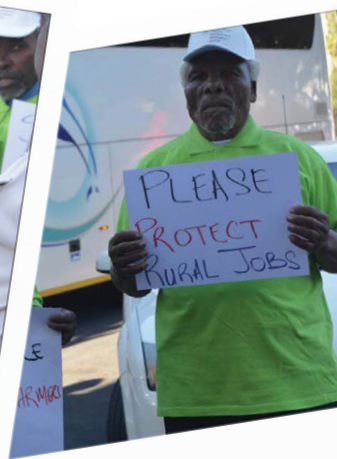 PLEASE
PROTECT
RURAL JOBS